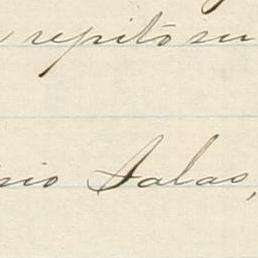 repito su
nio Salas,